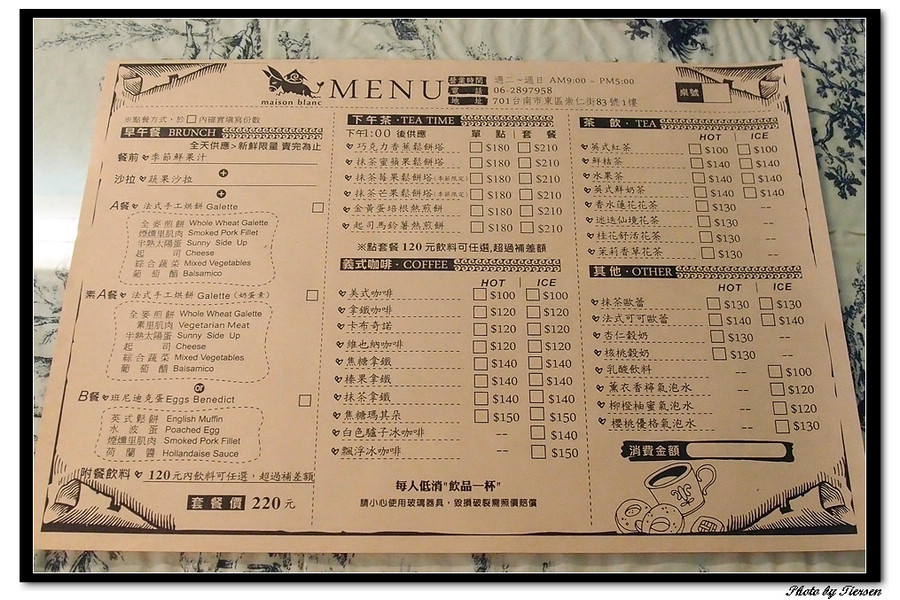 maison blanc
MENU
營業時間 週二~週日 AM9:00 – PM5:00
電話 06-2897958
地址 701台南市東區崇仁街83號1樓
桌號
※點餐方式,於□內確實填寫份數
早午餐 BRUNCH
全天供應>新鮮限量 賣完為止
餐前 季節鮮果汁
+
沙拉 蔬果沙拉
+
A餐 法式手工烘餅 Galette
全麥煎餅 Whole Wheat Galette
煙燻里肌肉 Smoked Pork Fillet
半熟太陽蛋 Sunny Side Up
起司 Cheese
綜合蔬菜 Mixed Vegetables
葡萄醋 Balsamico
素A餐 法式手工烘餅 Galette (奶蛋素)
全麥煎餅 Whole Wheat Galette
素里肌肉 Vegetarian Meat
半熟太陽蛋 Sunny Side Up
起司 Cheese
綜合蔬菜 Mixed Vegetables
葡萄醋 Balsamico
or
B餐 班尼迪克蛋 Eggs Benedict
英式鬆餅 English Muffin
水波蛋 Poached Egg
煙燻里肌肉 Smoked Pork Fillet
荷蘭醬 Hollandaise Sauce
附餐飲料 120元內飲料可任選,超過補差額
套餐價 220元
下午茶·TEA TIME
下午1:00 後供應 單點 套餐
巧克力香蕉鬆餅塔 $180 $210
抹茶蜜蘋果鬆餅塔 $180 $210
抹茶莓果鬆餅塔(季節限定) $180 $210
抹茶芒果鬆餅塔(季節限定) $180 $210
金黃蛋培根熱煎餅 $180 $210
起司馬鈴薯熱煎餅 $180 $210
※點套餐 120 元飲料可任選,超過補差額
義式咖啡·COFFEE
HOT ICE
美式咖啡 $100 $100
拿鐵咖啡 $120 $120
卡布奇諾 $120 $120
維也納咖啡 $120 $120
焦糖拿鐵 $140 $140
榛果拿鐵 $140 $140
抹茶拿鐵 $140 $140
焦糖瑪其朵 $150 $150
白色驢子冰咖啡 -- $140
飄浮冰咖啡 -- $150
每人低消"飲品一杯"
請小心使用玻璃器具,毀損破裂需照價賠償
茶飲·TEA
HOT ICE
英式紅茶 $100 $100
鮮桔茶 $100 $100
水果茶 $140 $140
英式鮮奶茶 $140 $140
香水蓮花花茶 $130 --
迷迭仙境花茶 $130 --
桂花舒活花茶 $130 --
茉莉香草花茶 $130 --
其他·OTHER
HOT ICE
抹茶歐蕾 $130 $130
法式可可歐蕾 $140 $140
杏仁穀奶 $130 --
核桃穀奶 $130 --
乳酸飲料 -- $100
薰衣香檸氣泡水 -- $120
柳橙柚蜜氣泡水 -- $120
櫻桃優格氣泡水 -- $130
消費金額
Photo by Tiersen